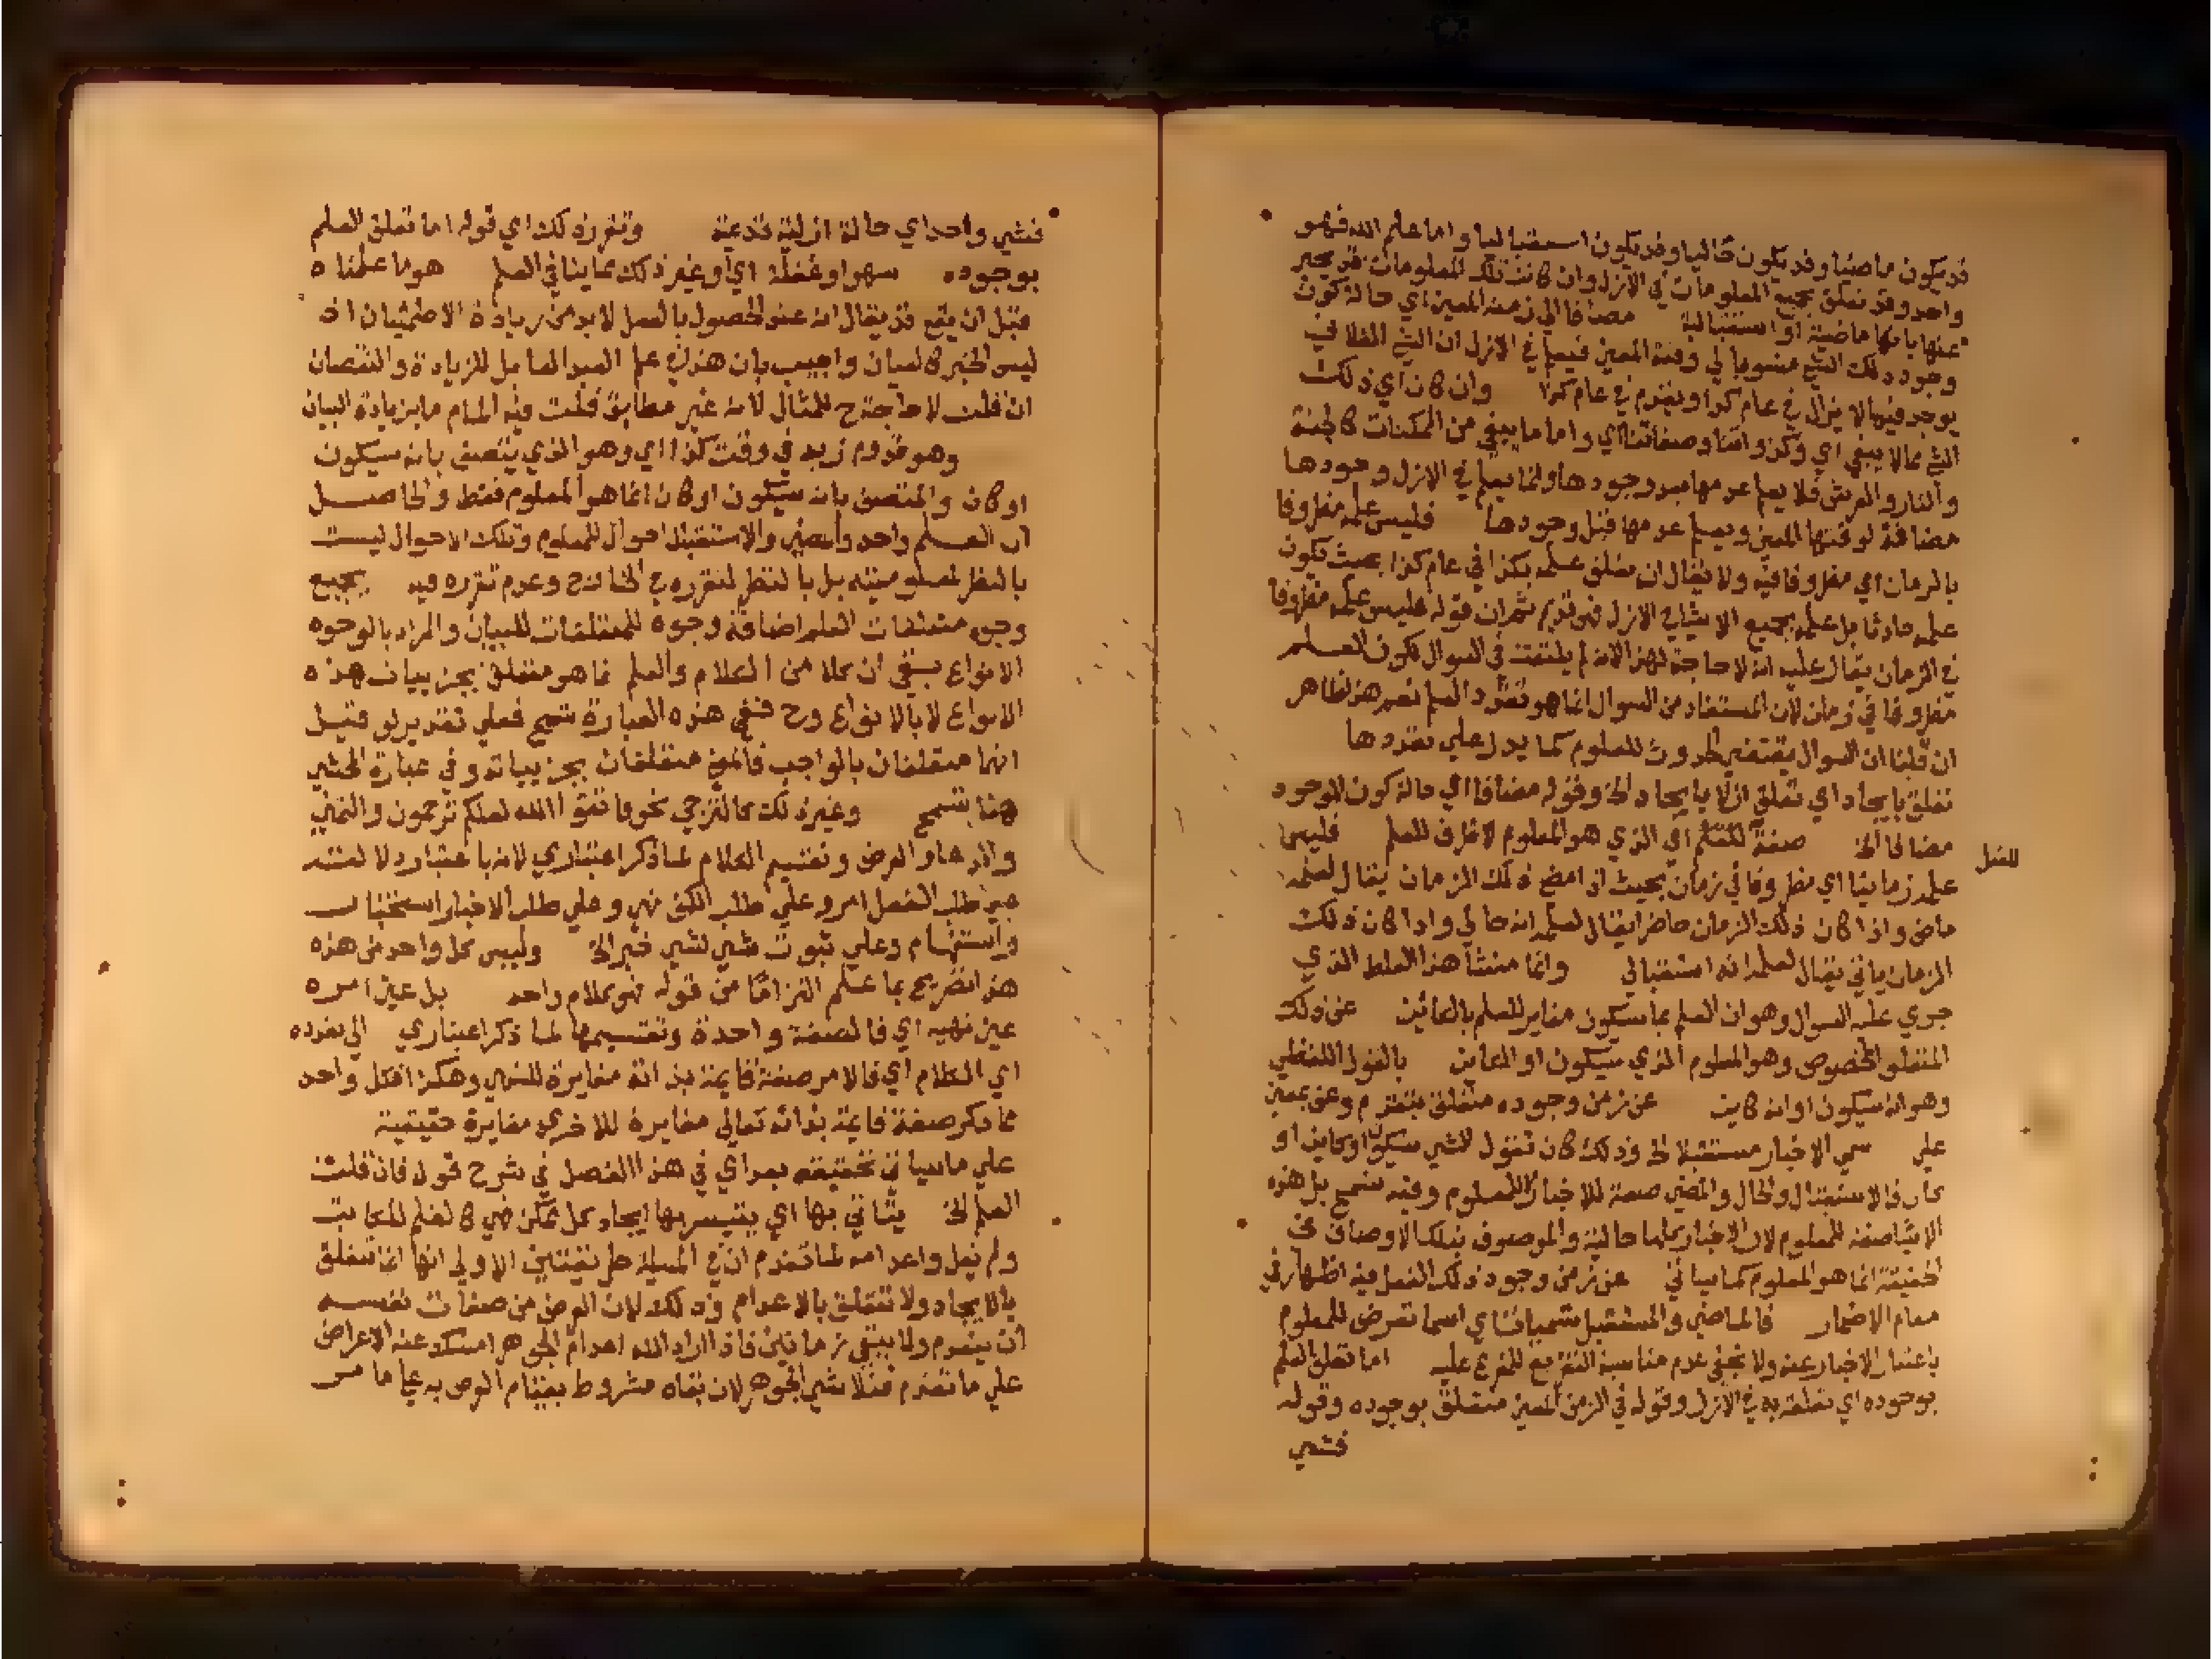 قد يكون ماضيا وقد يكون حاليا وقد يكون استقباليا واما علم الله فهو
واحد وقد تعلق بجميع المعلومات في الازل وان كانت تلك المعلومات قد يعبر
عنها بانها ماضية او استقبالية مضافا الي زمنه المعين اي حالة كون
وجود ذلك الشي منسوبا لي وقته المعين فيعلم في الازل ان الشي الفلاني
يوجد فيما لا يزال في عام كذا ويعدم في عام كذا وان كان اي ذلك
الشي مما لا يبقي اي وكذواتنا وصفاتنا اي واما ما يبقي من الممكنات كالجنة
والنار والعرش فلا يعلم عدمها بعد وجودها وانما يعلم في الازل وجودها
مضافة لوقتها المعين ويعلم عدمها قبل وجودها فليس علمه مظروفا
بالزمان اي مظروفا فيه ولا يقال ان تعلق علمه بكذا في عام كذا بحيث يكون
علمه حادثا بل علمه بجميع الاشيا في الازل فهو قديم ثم ان قوله فليس علمه مظروفا
في الزمان يقال عليه انه لا حاجة لهذا لانه لم يلتفت في السوال لكون العلم
مظروفا في زمان لان المستفاد من السوال انما هو تعدد العلم نعم هذا ظاهر
ان قلنا ان السوال يقتضي الحدوث للعلوم كما يدل علي تعددها
تعلق بايجاد اي تعلق ازلا بايجاد الخ وقوله مضافا اي حالة كون الوجود
مضافا الخ صفة للمتعلم اي الذي هو المعلوم لا ظرف للعلم فليس
للفعل
علمه زمانيا اي مظروفا في زمان بحيث اذا مضي ذلك الزمان يقال لعلمه
ماض واذا كان ذلك الزمان حاضرا يقال لعلمه انه حالي واذا كان ذلك
الزمان ياتي يقال لعلمه انه استقبالي وانما منشأ هذا الغلط الذي
جري عليه السوال وهو ان العلم بما سيكون مغاير للعلم بالكائن عن ذلك
المتعلق المخصوص وهو المعلوم الذي سيكون او الكائن بالقول اللفظي
وهو انه سيكون او انه كاين عن زمن وجوده متعلق بتقدم وعن بمعني
علي سمي الاخبار مستقبلا الخ وذلك كان تقول الشي سيكون او كاين او
كان فالاستقبال والحال والمضي صفة للاخبار لا للمعلوم وفيه تسمح بل هذه
الاشيا صفة للمعلوم لان الاخبار كلها حالية والموصوف بتلك الاوصاف في
الحقيقة انما هو المعلوم كما ياتي عن زمن وجود ذلك الفعل فيه اظهار في
مقام الاضمار فالماضي والمستقبل تسميات اي اسما تعرض للمعلوم
باعتبار الاخبار عنه ولا يخفي عدم مناسبة التفريع للمفرع عليه اما تعلق العلم
بوجوده اي تعلقه به في الازل وقوله في الزمن المعين متعلق بوجوده وقوله
فشي
فشي واحد اي حالة ازلية قديمة وتقرر ذلك اي قوله اما تعلق العلم
بوجوده سهوا وغفلة اي او غير ذلك مما ينافي العلم هو ما علمناه
قبل ان يقع قد يقال انه عند الحصول بالفعل لا بد من زيادة الاطمئنان اذ
ليس الخبر كالعيان واجيب بان هذا في علم العبد القابل للزيادة والنقصان
ان قلت لا حاجة ح للمثال لانه غير مطابق قلت فيه المام ما بزيادة البيان
وهو قدوم زيد في وقت كذا اي وهو الذي يتصف بانه سيكون
او كان والمتصف بانه سيكون او كان انما هو المعلوم فقط والحاصل
ان العلم واحد والمضي والاستقبال احوال للمعلوم وتلك الاحوال ليست
بالنظر لمعلوميته بل بالنظر لتقرره في الخارج وعدم تقرره فيه بجميع
وجوه متعلقات العلم اضافة وجوه للمتعلقات للبيان والمراد بالوجوه
الانواع بقي ان كلا من الكلام والعلم انما هو متعلق بجزييات هذه
الانواع لا بالانواع وح ففي هذه العبارة تسمح فعلي تقدير لو قيل
انهما متعلقان بالواجب فالمعني متعلقان بجزيياته وفي عبارة المحشي
هنا تسمح وغير ذلك كالترجي نحو فاتقوا الله لعلكم ترحمون والتمني
والدعاء والعرض وتقسيم الكلام لما ذكر اعتباري لانه باعتبار دلالته
علي طلب الفعل امر وعلي طلب الكف نهي وعلي طلب الاخبار استخبار
واستفهام وعلي ثبوت شي لشي خبر الخ وليس كل واحد من هذه
هذا تصريح بما علم التزاما من قوله فهو كلام واحد بل عين امره
عين نهيه اي فالصفة واحدة وتقسيمها لما ذكر اعتباري الي تعدده
اي الكلام اي فالامر صفة قايمة بذاته مغايرة للنهي وهكذا فكل واحد
مما ذكر صفة قايمة بذاته تعالي مغايرة للاخري مغايرة حقيقية
علي ما سياتي تحقيقه بعد اي في هذا الفصل في شرح قوله فان قلت
العلم الخ يتاتي بها اي يتيسر بها ايجاد كل ممكن فهي كالعلم للكاتب
ولم يقل واعدامه لما تقدم ان في المسيلة طريقتين الاولي انها انما تتعلق
بالايجاد ولا تتعلق بالاعدام وذلك لان العرض من صفات نفسه
ان ينعدم ولا يبقي زمانين فاذا اراد الله اعدام الجوهر امسك عنه الاعراض
علي ما تقدم فتلاشي الجوهر لان بقاه مشروط بقيام العرض به علي ما مر